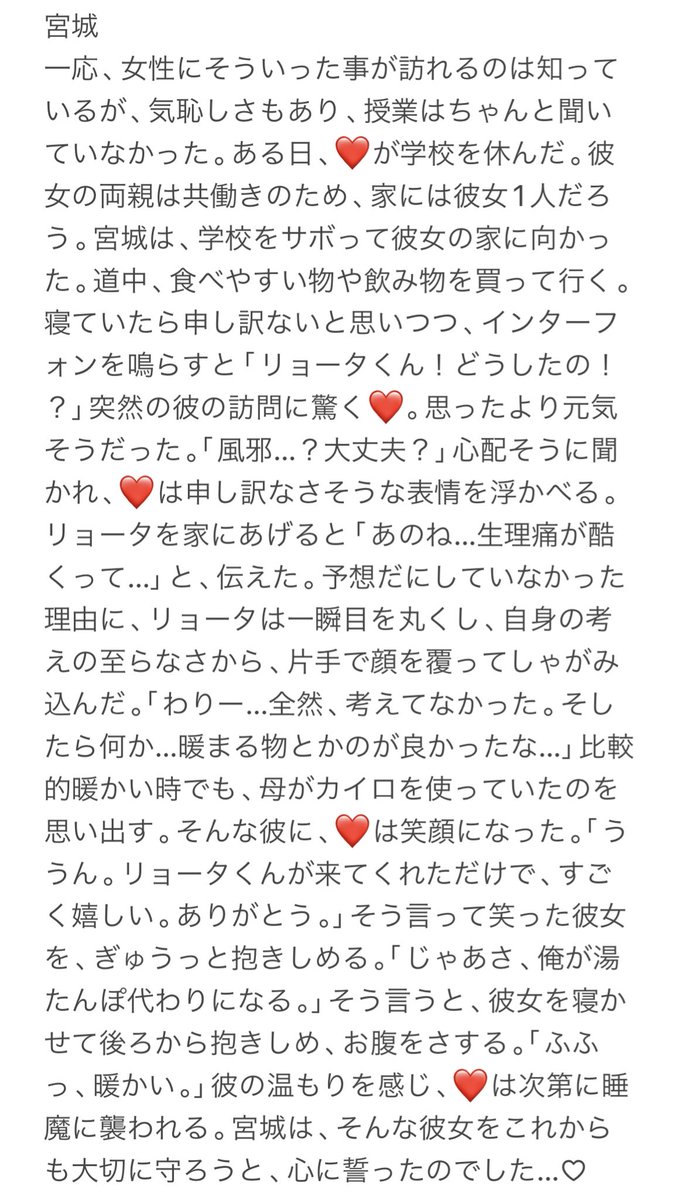 宮城
一応、女性にそういった事が訪れるのは知って
いるが、気恥しさもあり、授業はちゃんと聞い
ていなかった。ある日、❤️が学校を休んだ。彼
女の両親は共働きのため、家には彼女1人だろ
う。宮城は、学校をサボって彼女の家に向かっ
た。道中、食べやすい物や飲み物を買って行く。
寝ていたら申し訳ないと思いつつ、インターフ
ォンを鳴らすと「リョータくん！どうしたの！
？」突然の彼の訪問に驚く❤️。思ったより元気
そうだった。「風邪...？大丈夫？」心配そうに聞
かれ、❤️は申し訳なさそうな表情を浮かべる。
リョータを家にあげると「あのね...生理痛が酷
くって...」と、伝えた。予想だにしていなかった
理由に、リョータは一瞬目を丸くし、自身の考
えの至らなさから、片手で顔を覆ってしゃがみ
込んだ。「わりー...全然、考えてなかった。そし
たら何か...暖まる物とかのが良かったな...」比較
的暖かい時でも、母がカイロを使っていたのを
思い出す。そんな彼に、❤️は笑顔になった。「う
うん。リョータくんが来てくれただけで、すご
く嬉しい。ありがとう。」そう言って笑った彼女
を、ぎゅうっと抱きしめる。「じゃあさ、俺が湯
たんぽ代わりになる。」そう言うと、彼女を寝か
せて後ろから抱きしめ、お腹をさする。「ふふ
っ、暖かい。」彼の温もりを感じ、❤️は次第に睡
魔に襲われる。宮城は、そんな彼女をこれから
も大切に守ろうと、心に誓ったのでした...♡